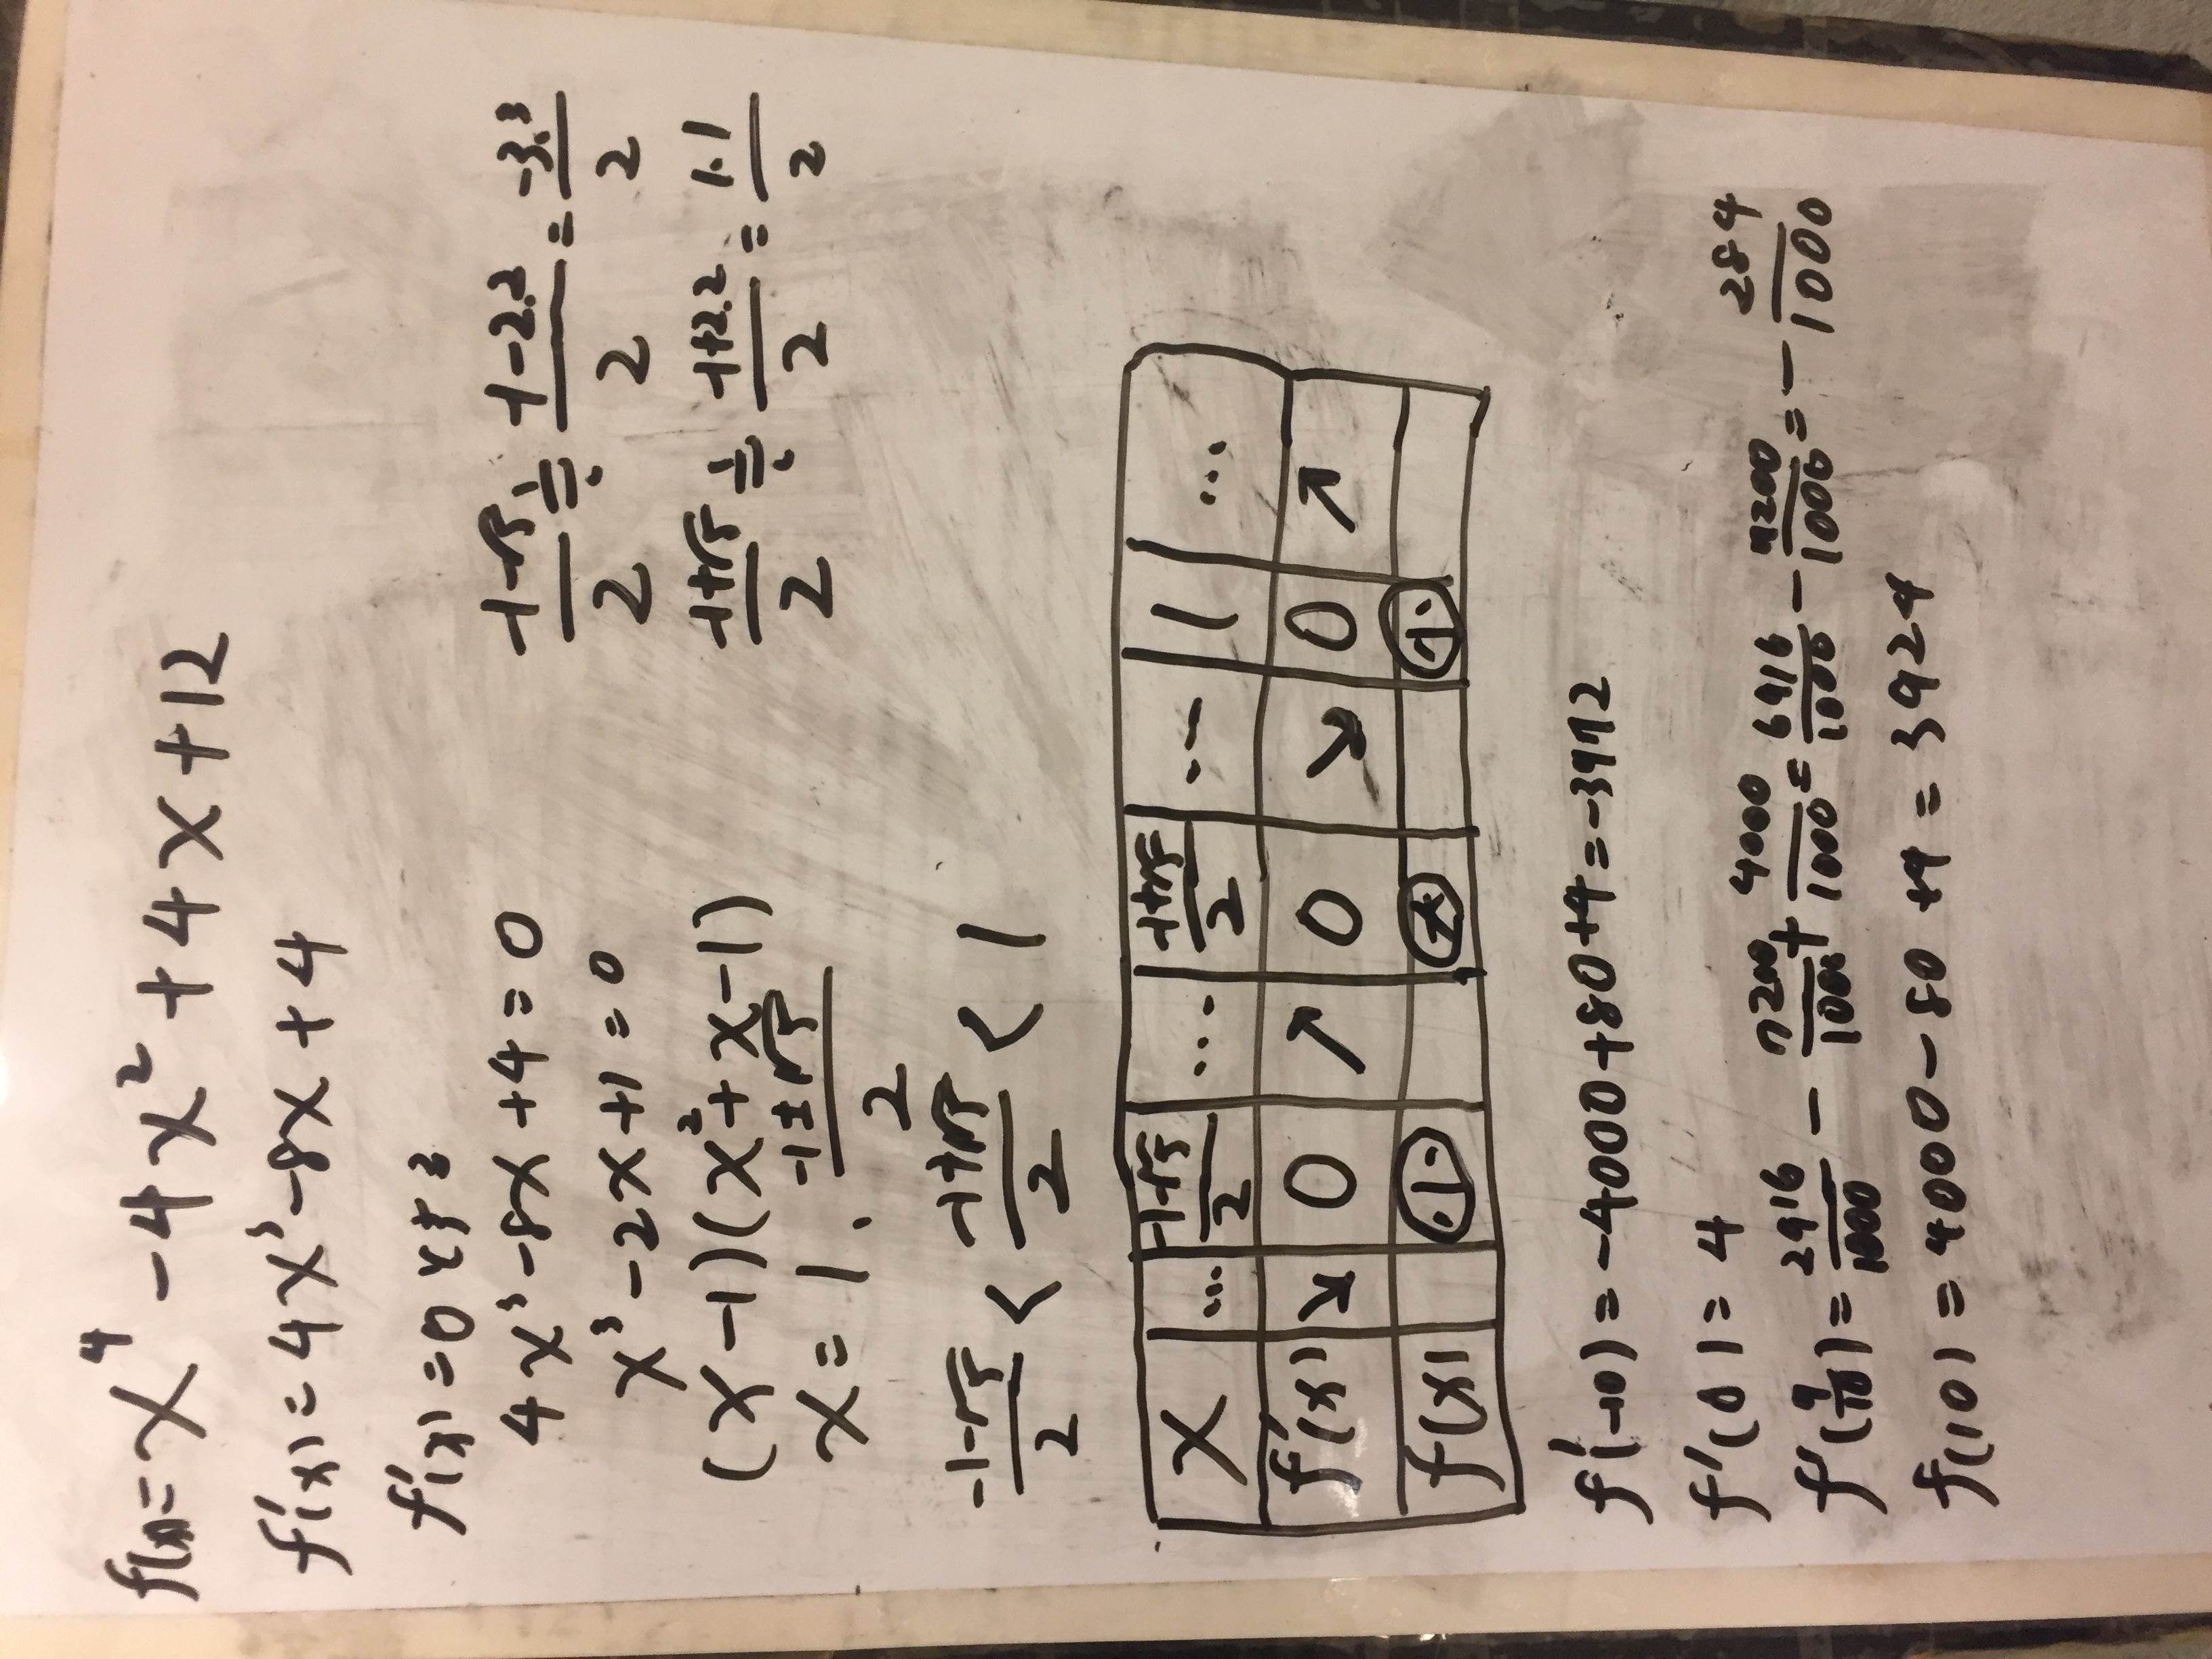 f(x)=x⁴-4x²+4x+12
f'(x)=4x³-8x+4
f'(x)=0とする
4x³-8x+4=0
x³-2x+1=0
(x-1)(x²+x-1)
x=1. -1±√5/2
-1-√5/2 ≒ -1-2.2/2 = -3.3/2
-1+√5/2 ≒ -1+2.2/2 = 1.1/2
-1-√5/2 < -1+√5/2 < 1
x … -1-√5/2 … -1+√5/2 … 1 …
f'(x) ↘ 0 ↗ 0 ↘ 0 ↗
f(x) 小 大 小
f'(-10)=-4000+80+4=-3912
f'(0)=4
f'(9/10)=2916/1000 - 7200/1000 + 4000/1000 = 6916/1000 - 7200/1000 = - 284/1000
f(10)=4000-80+4=3924